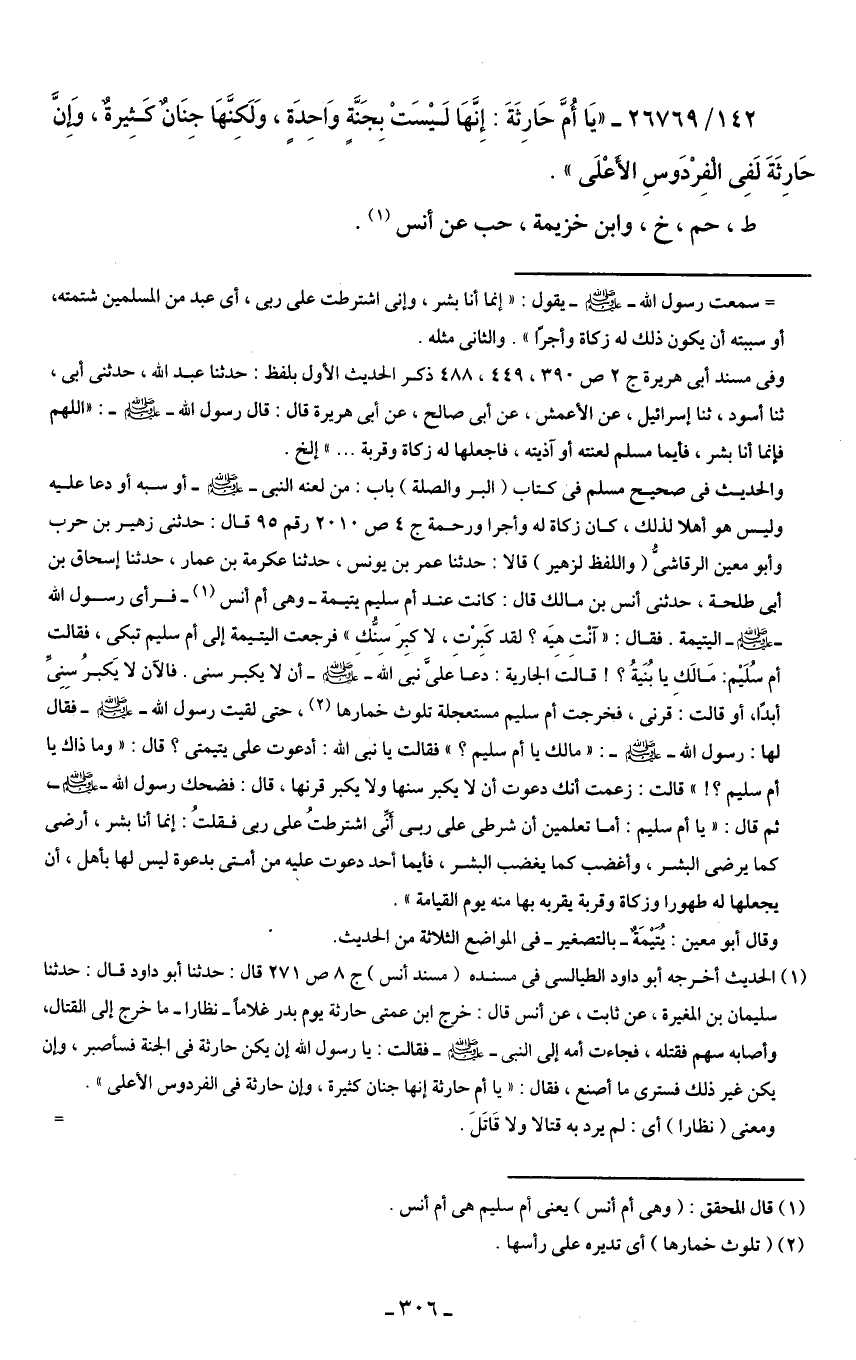 ١٤٢/ ٢٦٧٦٩ ـ «يَا أُمَّ حَارِثَةَ : إِنَّهَا لَـيْسَتْ بِجَنَّةٍ وَاحِدَةٍ ، وَلَكِنَّهَا جِنَانٌ كَـثِيرةٌ ، وَإِنَّ
حَارِثَةَ لَفِى الْفِرْدَوسِ الأَعْلَى » .
ط ، حم ، خ ، وابن خزيمة ، حب عن أنس (١) .
= سمعت رسول الله ـ ﷺ ـ يقول : « إنما أنا بشر ، وإنى اشترطت على ربى ، أى عبد من المسلمين شتمته،
أو سببته أن يكون ذلك له زكاة وأجرًا » . والثانى مثله .
وفى مسند أبى هريرة ج ٢ ص ٣٩٠ ، ٤٤٩ ، ٤٨٨ ذكـر الحديث الأول بلفظ : حدثنا عبـد الله ، حدثنى أبى ،
ثنا أسود ، ثنا إسرائيل ، عن الأعمش ، عن أبى صالح ، عن أبى هريرة قال : قال رسول الله ـ ﷺ ـ : «اللهم
فإنما أنا بشر ، فأيما مسلم لعنته أو آذيته ، فاجعلها له زكاة وقربة ... » إلخ .
والحديـث فى صحيـح مسلم فى كـتاب ( البر والصلة ) باب : من لعنه النبى ـ ﷺ ـ أو سبه أو دعا علـيه
وليس هو أهلا لذلك ، كـان زكاة له وأجرا ورحمة ج ٤ ص ٢٠١٠ رقم ٩٥ قـال : حدثنى زهيـر بن حرب
وأبو معين الرقاشىُّ ( واللفظ لزهير ) قالا : حدثنا عمر بن يونس ، حدثنا عكرمة بن عمار ، حدثنا إسحاق بن
أبى طلحـة ، حدثنى أنس بن مـالك قال : كانت عنـد أم سليم يتيمـة ـ وهى أم أنس (١) ـ فـرأى رسـول الله
ـ ﷺ ـ اليتيمة . فقـال : « آنْتِ هِيَه ؟ لقد كَبِرْتِ ، لا كَبِرَ سِنُّكِ » فرجعت اليتـيمة إلى أم سليم تبكى ، فقالت
أم سُلَيْمٍ: مَـالَكِ يا بُنَيةُ ؟ ! قـالت الجارية : دعـا علىَّ نبى الله ـ ﷺ ـ أن لا يكبـر سنى . فالآن لا يَكبـرُ سِنِىِّ
أبدًا، أو قالت : قرنى ، فخرجت أم سليم مستعجلة تلوث خمارها (٢) ، حتى لقيت رسول الله ـ ﷺ ـ فقال
لها : رسول الله ـ ﷺ ـ : « مالك يا أم سليم ؟ » فقالت يا نبى الله : أدعوت على يتيمتى ؟ قال : « وما ذاك يا
أم سليم ؟! » قالت : زعمت أنك دعوت أن لا يكبر سنها ولا يكبر قرنها ، قال : فضحك رسول الله ـ ﷺ ـ
ثم قال : « يا أم سليم : أمـا تعلمين أن شرطى على ربـى أَنِّى اشترطتُ على ربى فـقلتُ : إنما أنا بشر ، أرضى
كما يرضى البشـر ، وأغضب كما يغضب البشـر ، فأيما أحد دعوت عليه من أمـتى بدعوة ليس لها بأهل ، أن
يجعلها له طهورا وزكاة وقربة يقربه بها منه يوم القيامة » .
وقال أبو معين : يُتَيْمَةٌ ـ بالتصغير ـ فى المواضع الثلاثة من الحديث.
(١) الحديث أخـرجه أبو داود الطيالسى فى مسنـده ( مسند أنس ) ج ٨ ص ٢٧١ قال : حدثنا أبو داود قـال : حدثنا
سليمان بن المغيرة ، عن ثابت ، عن أنس قال : خرج ابن عمتى حارثة يوم بدر غلاماً ـ نظارا ـ ما خرج إلى القتال،
وأصابه سهم فقتله ، فجاءت أمه إلى النبى ـ ﷺ ـ فقالت : يا رسول الله إن يكن حارثة فى الجنة فسأصبر ، وإن
يكن غير ذلك فسترى ما أصنع ، فقال : « يا أم حارثة إنها جنان كثيرة ، وإن حارثة فى الفردوس الأعلى » .
ومعنى ( نظارا ) أى : لم يرد به قتالا ولا قَاتَلَ . =
(١) قال المحقق : ( وهى أم أنس ) يعنى أم سليم هى أم أنس .
(٢) ( تلوث خمارها ) أى تديره على رأسها .
ـ ٣٠٦ ـ